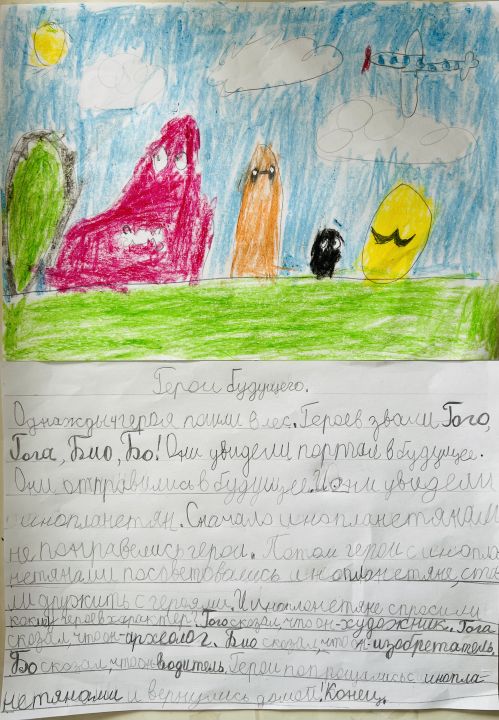 Герои будущего.
Однажды 4 героя пошли в лес. Героев звали Гого,
Гога, Био, Бо! Они увидели портал в будущее.
Они отправились в будущее. И они увидели
инопланетян. Сначало инопланетянам
не понравелись герои. Потом герои с инопла-
нетянами посоветовались и инопланетяне ста-
ли дружить с героями. И инопланетяне спросили
какий у героев характер? Гого сказал, что он-художник. Гога
сказал, что он-археолог. Био сказал, что он-изобретатель.
Бо сказал, что он водитель. Герои попрощались с инопла-
нетянами и вернулись домой! Конец.